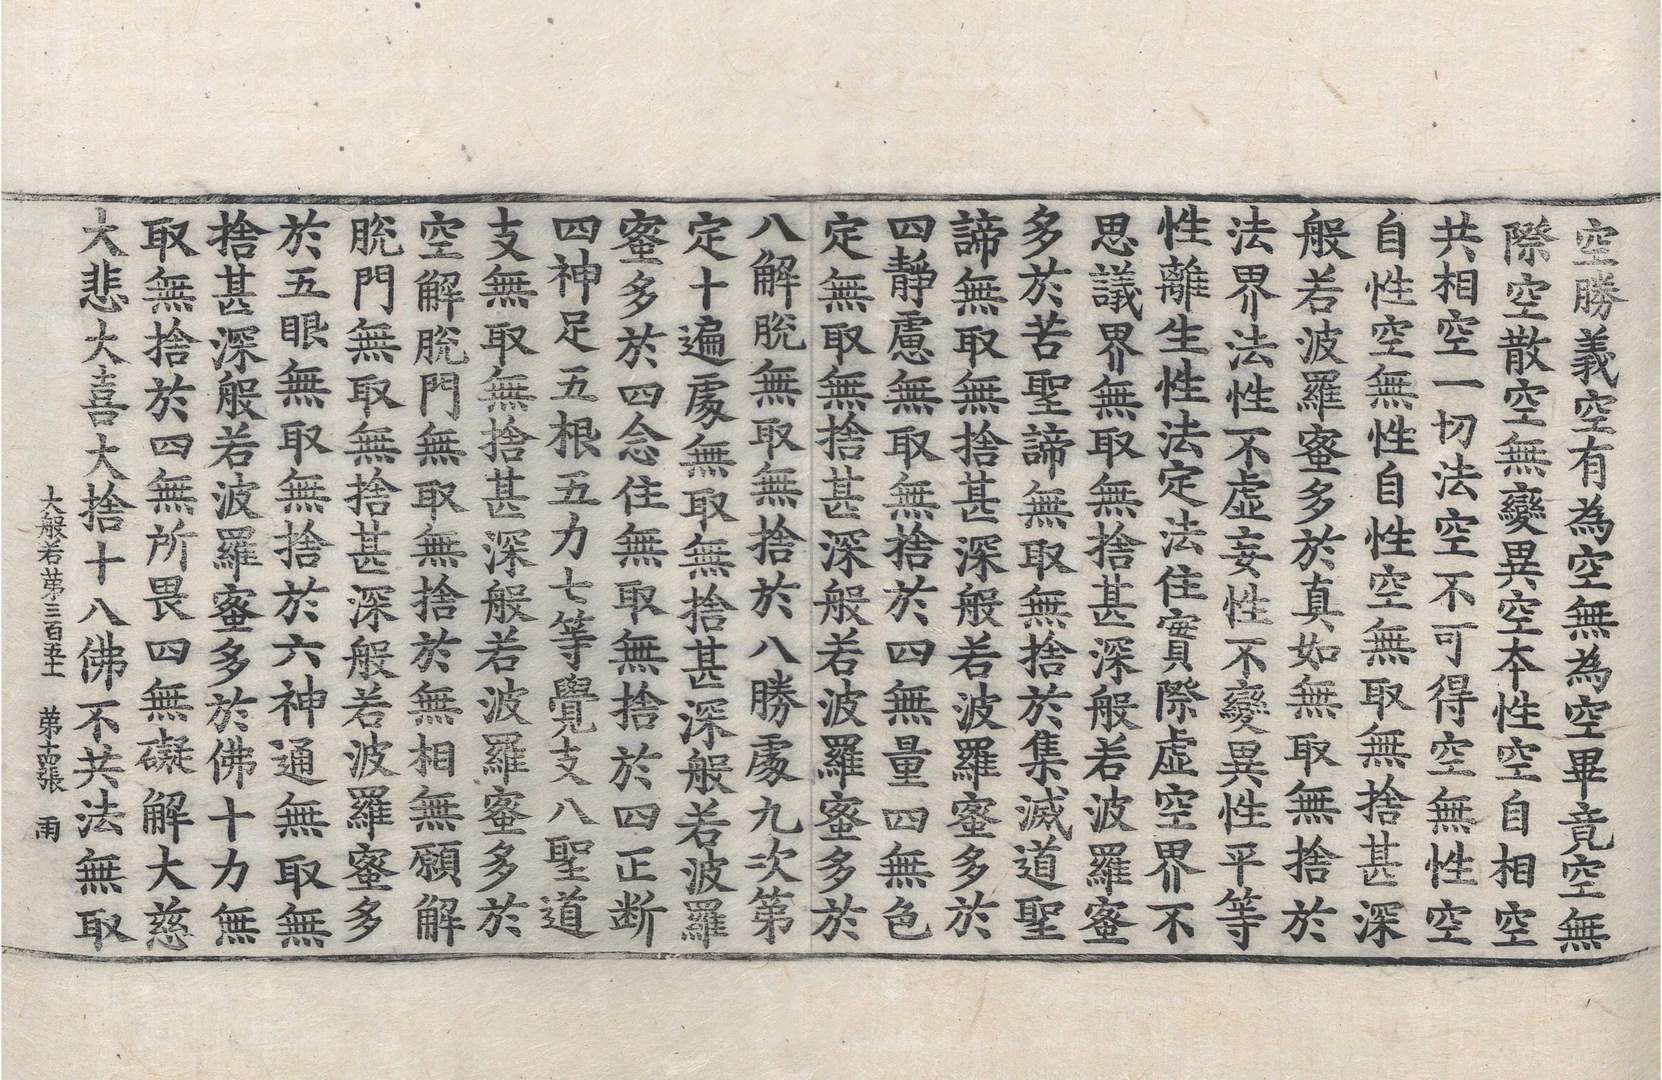 空勝義空有為空無為空畢竟空無
際空散空無變異空本性空自相空
共相空一切法空不可得空無性空
自性空無性自性空無取無捨甚深
般若波羅蜜多於真如無取無捨於
法界法性不虛妄性不變異性平等
性離生性法定法住實際虛空界不
思議界無取無捨甚深般若波羅蜜
多於苦聖諦無取無捨於集滅道聖
諦無取無捨甚深般若波羅蜜多於
四靜慮無取無捨於四無量四無色
定無取無捨甚深般若波羅蜜多於
八解脫無取無捨於八勝處九次第
定十遍處無取無捨甚深般若波羅
蜜多於四念住無取無捨於四正断
四神足五根五力七等覺支八聖道
支無取無捨甚深般若波羅蜜多於
空解脫門無取無捨於無相無願解
脫門無取無捨甚深般若波羅蜜多
於五眼無取無捨於六神通無取無
捨甚深般若波羅蜜多於佛十力無
取無捨於四無所畏四無礙解大慈
大悲大喜大捨十八佛不共法無取
大般若第三百五十 第十四張 雨